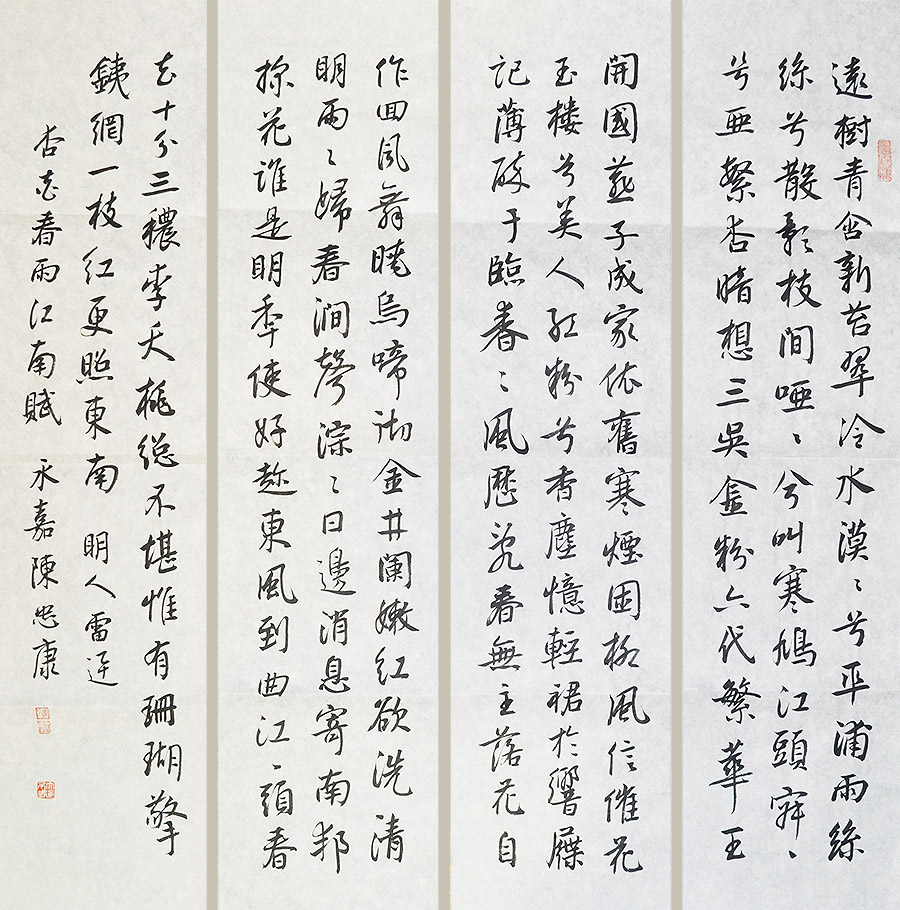 遠樹青含新苔翠冷水漠〻兮平浦雨絲
絲兮散影枝間啞〻兮叫寒鳩江頭寂〻
兮亞繁杏暗想三吳金粉六代繁華王
開國燕子成家依舊寒煙困柳風信催花
玉樓兮美人紅粉兮香塵憶輕裙於響屧
記薄醉于臨春〻風歷亂春無主落花自
作回風舞曉烏啼彻金井闌嫩紅欲洗清
明雨〻歸春澗聲淙〻日邊消息寄南邦
探花誰是明年使好趁東風到曲江〻頭春
色十分三穠李夭桃總不堪惟有珊瑚擎
鐵網一枝紅更照東南 明人雷
杏花春雨江南賦 永嘉陳忠康